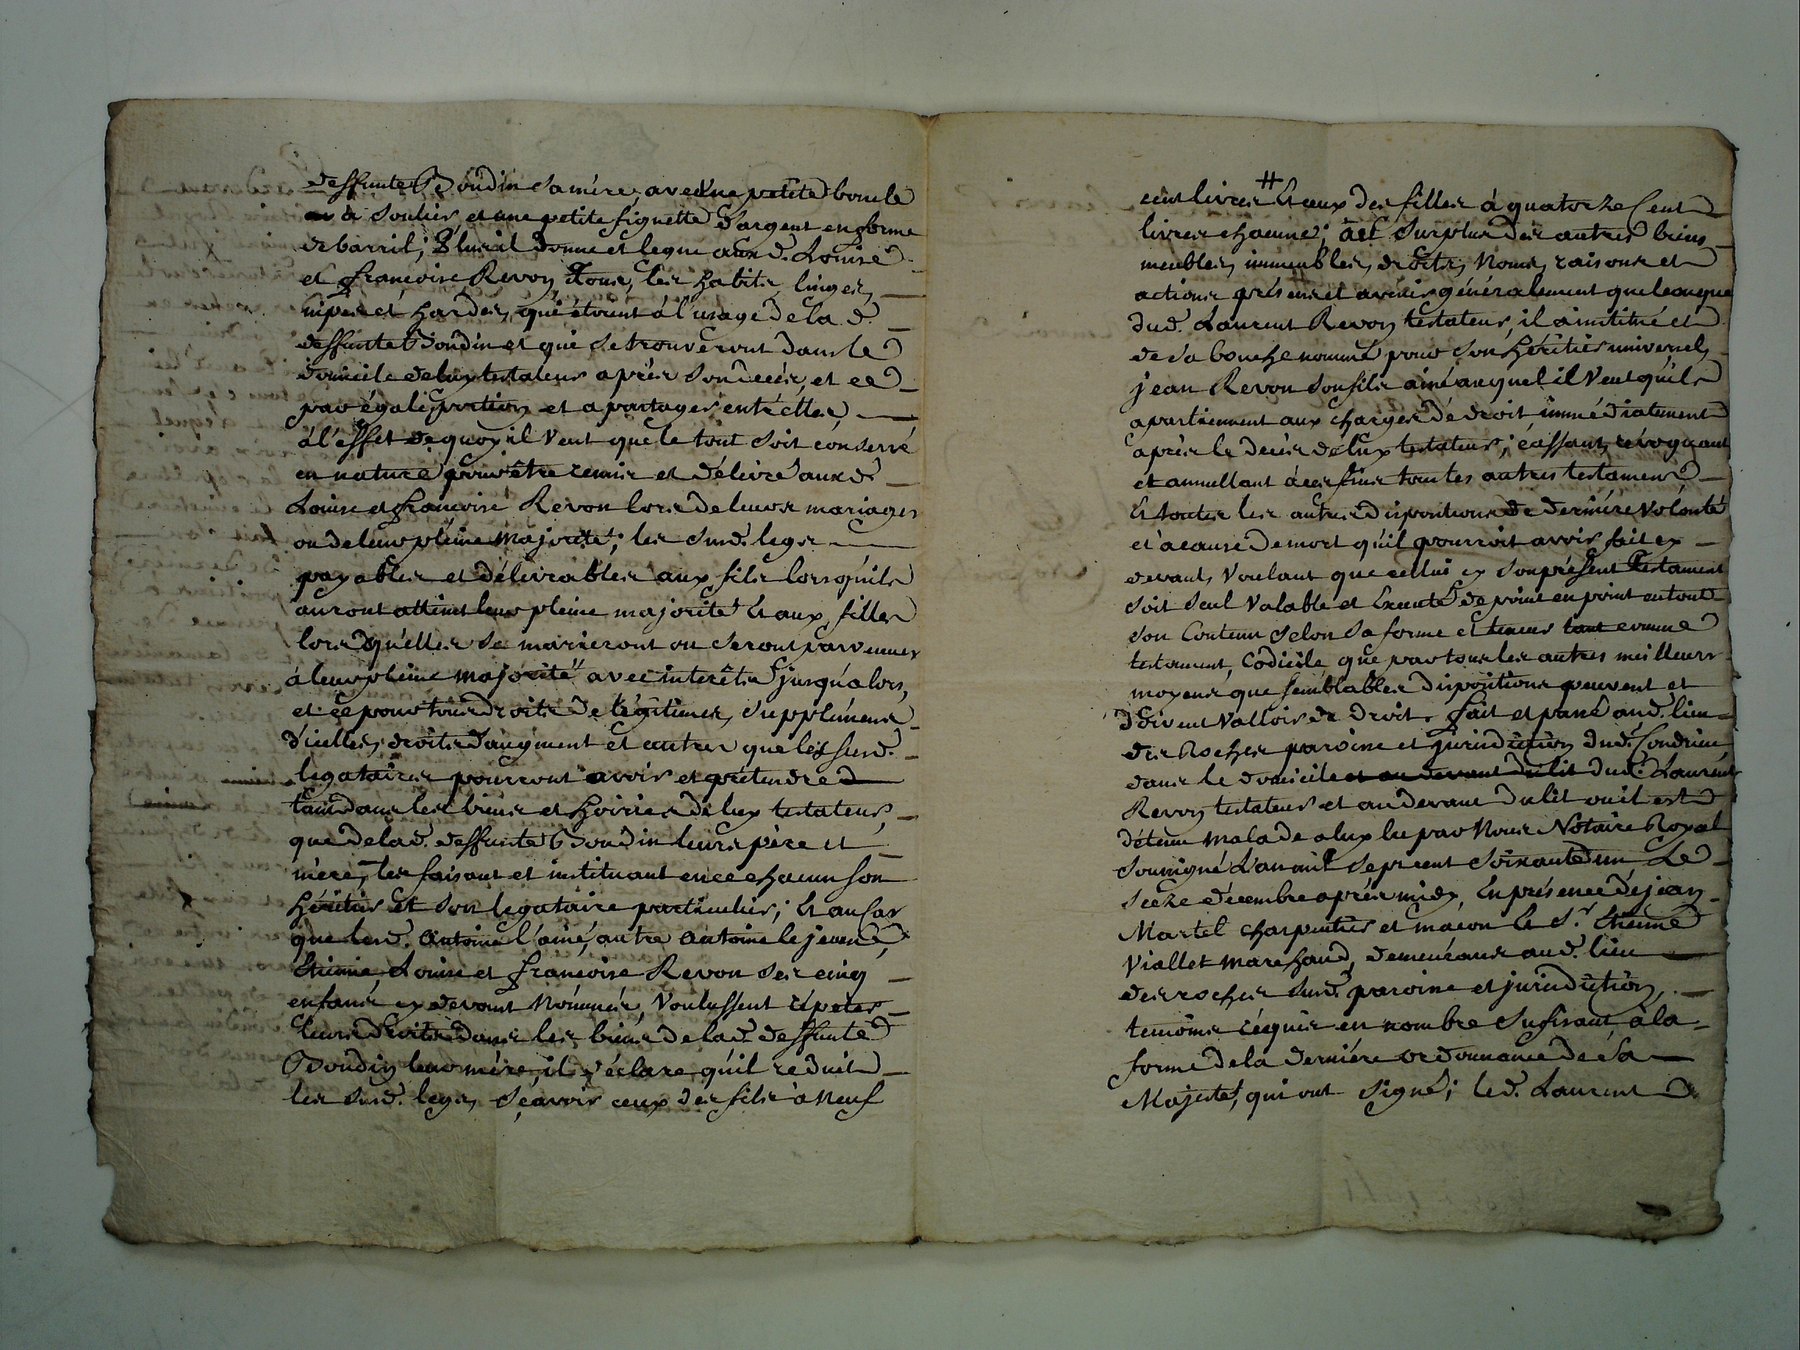 deffunte Boudin sa mére, avec une petite boucle
a soulier et une petite signette d'argent en forme
de barril; Plus il donne et legue aux d. Louise
et françoise Revon, Tous les habits, linges,
nipes et hardes, qui étoient à l'usage de la d.
deffunte Boudin et qui se trouveront dans le
domicile de luy testateur aprés son decés, et ce
par égale portion et a partager entr'elles
à l'effet de quoy il veut que le tout soit conservé
en nature pour être remis et délivré aux d.
Louise et françoise Revon lors de leurs mariages
ou de leur pleine majorité; les susd. legs
payables et délivrables aux fils lorsqu'ils
auront attint leur pleine majorité Et aux filles
lors qu'elles se marieront ou seront parvenues
à leur pleine majorité avec interêts jusqu'alors,
et ce pour tous droits de légitimes, supplémens
d'icelles, droits d'augment et autres que les susd.
legataires pourront avoir et prétendre
tant dans les biens et hoiries de luy testateur,
que de lad. deffunte Boudin leurs père et
mère, les faisant et instituant en ce chacun son
héritier et son legataire particulier; Et au cas
que lesd. Antoine l'ainé, autre Antoine le jeune,
Etienne, Louise et françoise Revon ses cinq
enfans cy devant nommés, voulussent répeter
leurs droits dans les biens de lad. deffunte
Boudin leur mére, il déclare qu'il reduit
les susd. legs, sçavoir ceux des fils à neuf
cent livres Et ceux des filles à quatorze Cent
livres chacune; au surplus des autres biens
meubles, immeubles, droits, noms, raisons et
actions présens et avenir généralement quelconque
dud. Laurent Revon testateur, il a institué et
de sa bouche nommé pour son héritier universel,
jean Revon son fils ainé auquel il veut qu'ils
apartiennent aux charges de droit immédiatement
aprés le decés de luy testateur; cassant, révoquant
et annullant à ces fins toutes autres testamens
Et toutes les autres dispositions de derniére volonté
et à cause de mort qu'il pourroit avoir fait cy
devant, voulant que cellui cy son présent Testament
soit seul valable et Executé de point en point en tout
son Contenu selon sa forme et teneur tant comme
testament, Codicile que par tous les autres meilleurs
moyens que semblables dispositions peuvent et
doivent valloir de droit. fait et passé aud. lieu
des Roches paroisse et jurisdiction dud. Condrieu
dans le domicile et au devant du lit dud. Laurent
Revon testateur et au devant du lit ou il est
détenu malade a luy lu par Nous Notaire Royal
soussigné L'an mil sept cent soixante un Le
seize décembre aprés midy, En présence de jean
Martel charpentier et maçon le Sr. Etienne
Viallet marchand, demeurans aud. lieu
des roches susd. paroisse et jurisdiction,
temoins réquis en nombre sufisant, à la
forme de la derniére ordonnance de Sa
Majesté, qui ont signé; led. Laurent